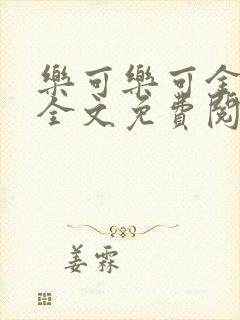 樂可樂可全
全文免費閱
姜霖